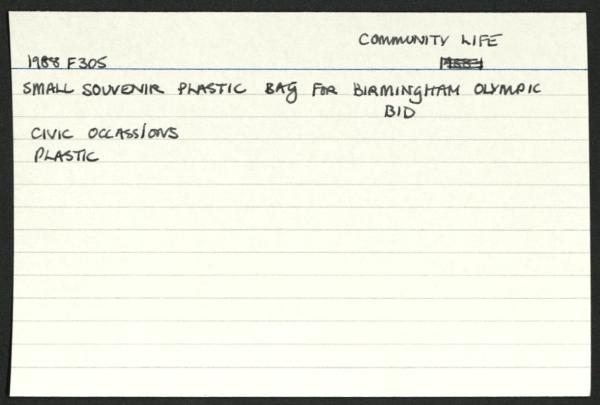 COMMUNITY LIFE
1988 F305
SMALL SOUVENIR PLASTIC BAG FOR BIRMINGHAM OLYMPIC
BID
CIVIC OCCASSIONS
PLASTIC